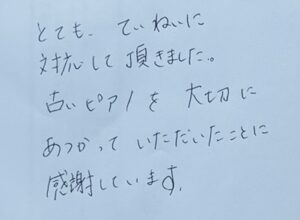 とても、ていねいに
対応して頂きました。
古いピアノを大切に
あつかっていただいたことに
感謝しています。